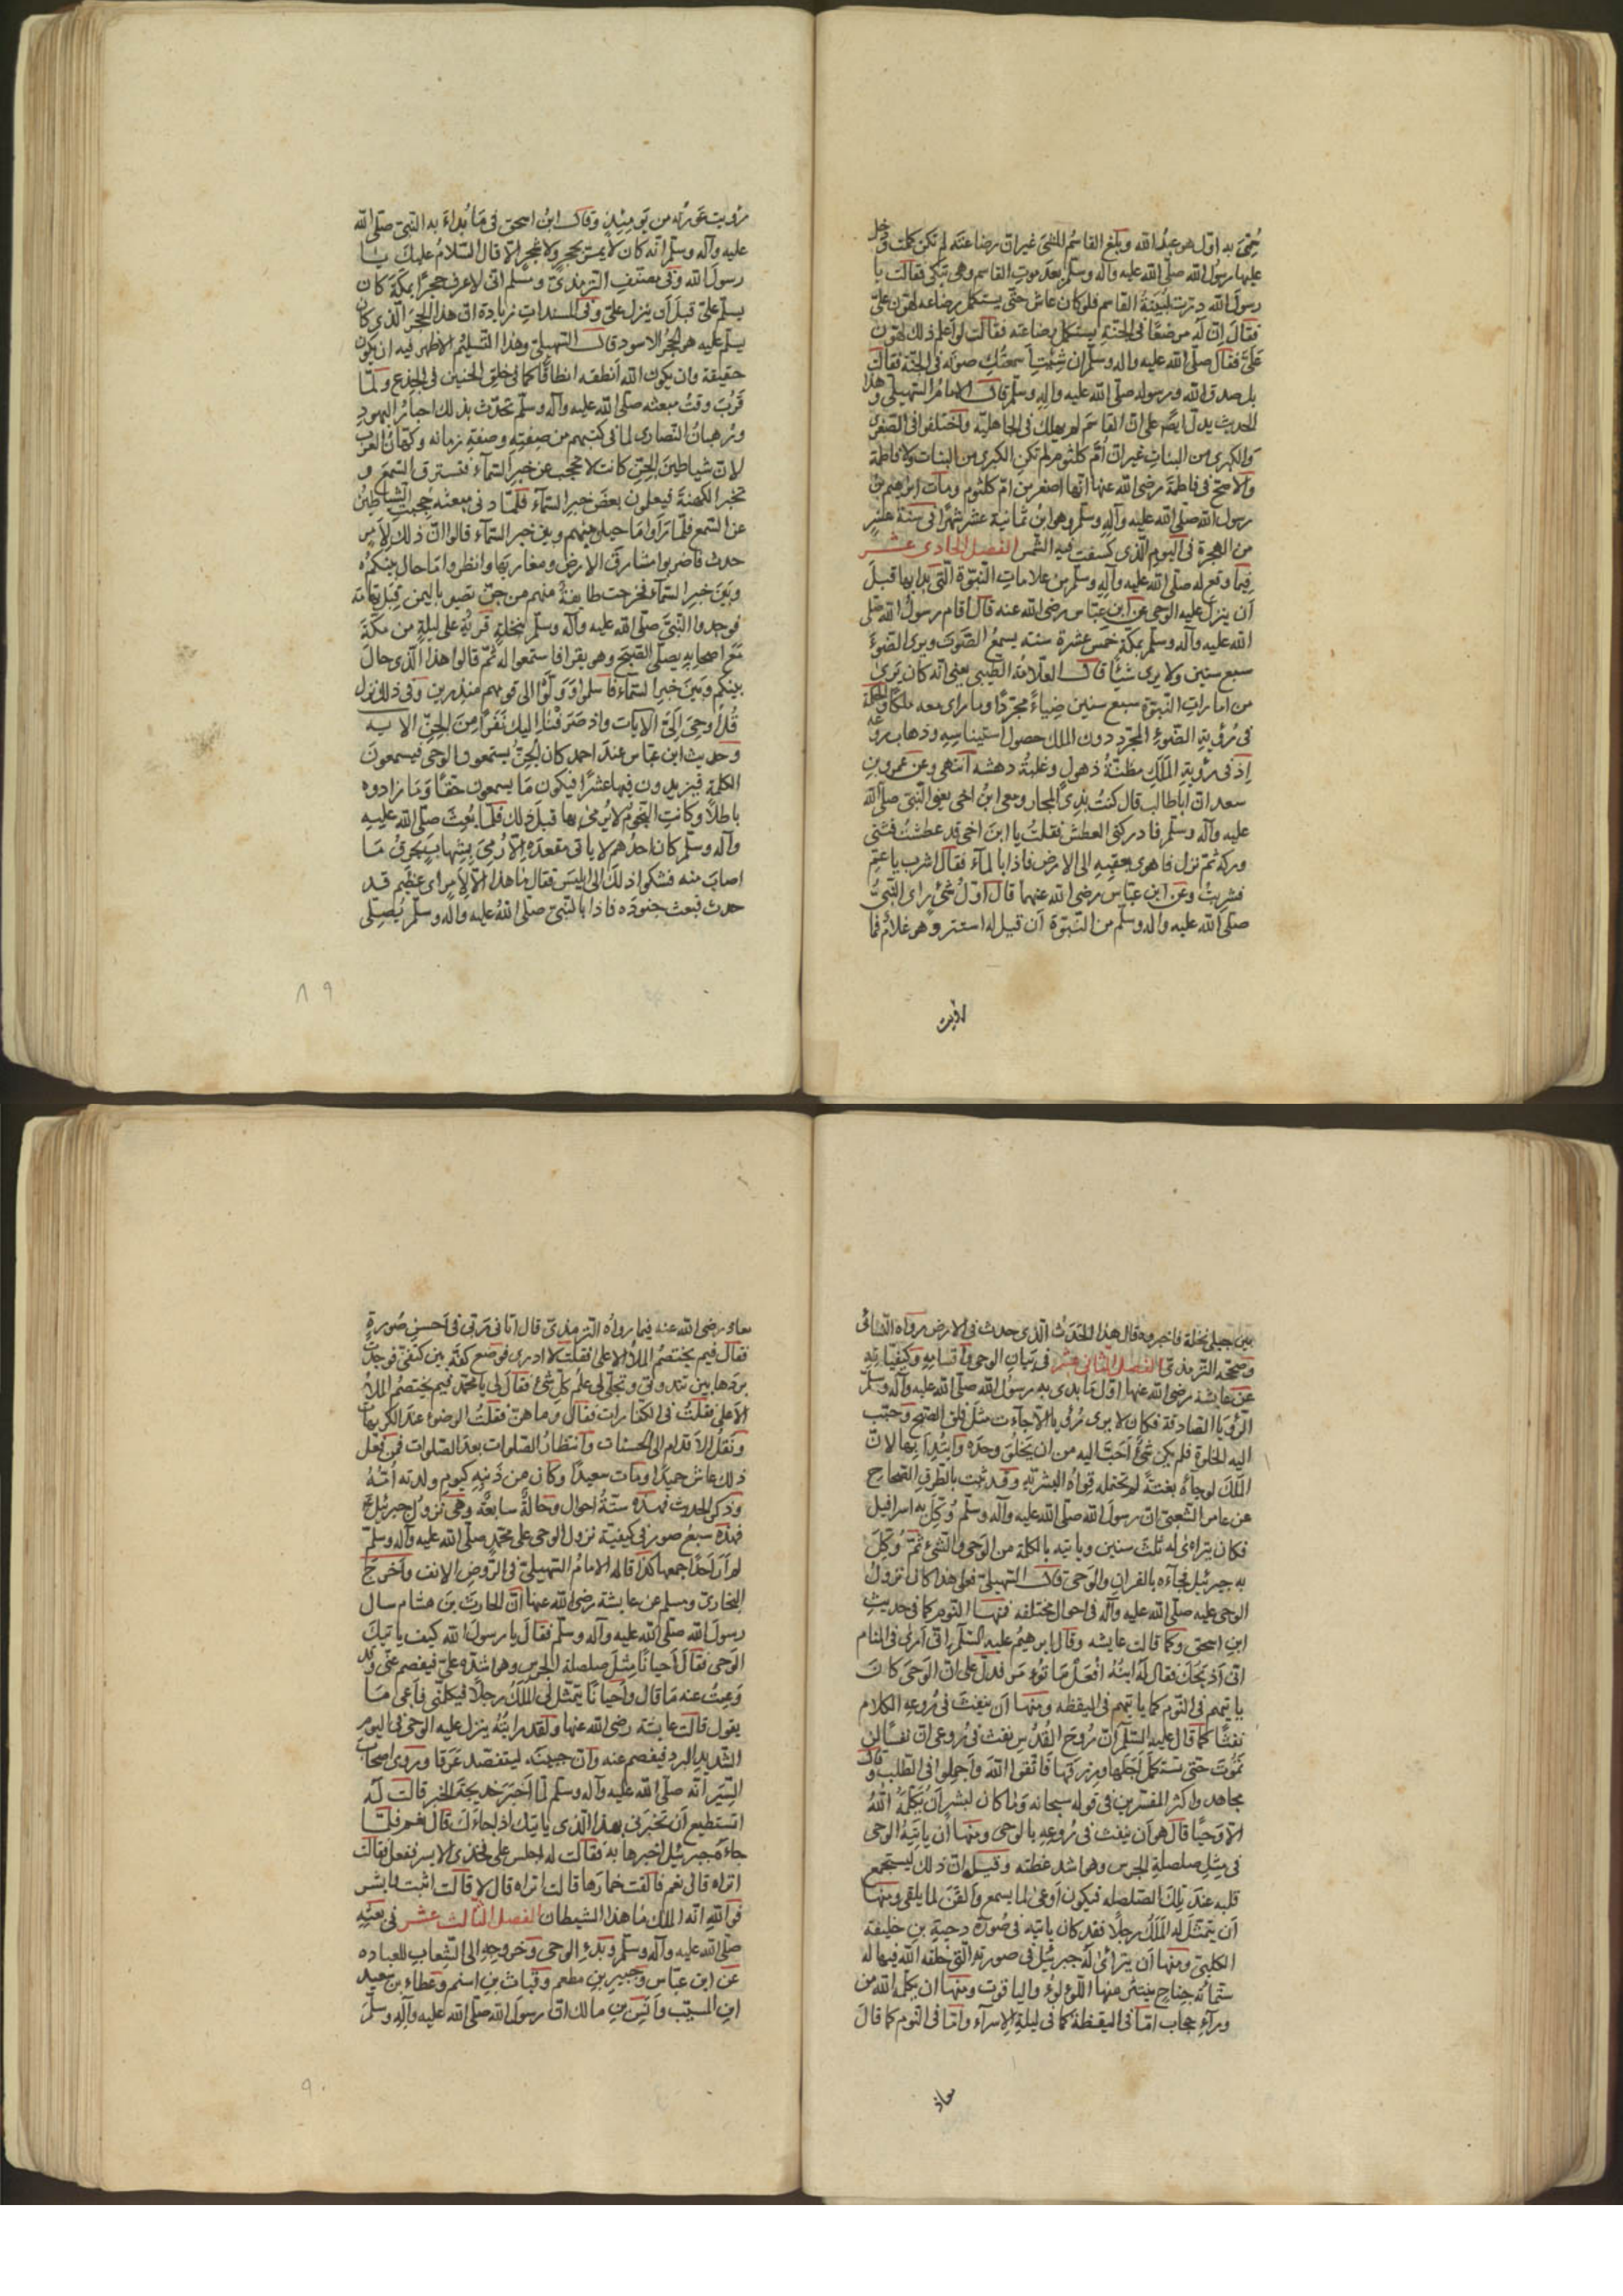 سمي به اول هو عبد الله وبلغ القاسم المشي غير ان رضاعته لم تكن كملت ودخل
عليها رسول الله صلى الله عليه وآله وسلم بعد موت القاسم وهي تبكي فقالت يا
رسول الله درت لبينة القاسم فلو كان عاش حتى يستكمل رضاعه لهون علي
فقال ان له مرضعا في الجنة يستكمل رضاعته فقالت لو اعلم ذلك لهون
علي فقال صلى الله عليه وآله وسلم ان شئت اسمعتك صوته في الجنة فقالت
بل صدق الله ورسوله صلى الله عليه وآله وسلم قال الامام السهيلي وهذا
الحديث يدل ايضا على ان القاسم لم يهلك في الجاهلية واختلفوا في الصغرى
والكبرى من البنات غير ان ام كلثوم لم تكن الكبرى من البنات ولا فاطمة
والاصح في فاطمة رضي الله عنها انها اصغر من ام كلثوم ومات ابرهيم بن
رسول الله صلى الله عليه وآله وسلم وهو ابن ثمانية عشر شهرا في سنة عشر
من الهجرة في اليوم الذي كسفت فيه الشمس الفصل الحادي عشر
فيما وقع له صلى الله عليه وآله وسلم من علامات النبوة التي بدا بها قبل
ان ينزل عليه الوحي عن ابن عباس رضي الله عنه قال اقام رسول الله صلى
الله عليه وآله وسلم بمكة خمس عشرة سنة يسمع الصوت ويرى الضوء
سبع سنين ولا يرى شيئا قال العلامة الطيبي يعني انه كان يرى
من امارات النبوة سبع سنين ضياء مجردا وما راى معه ملكا والحكمة
في رؤية الضوء المجرد دون الملك حصول استيناسه وذهاب روعه
اذ في رؤية الملك مظنة ذهول وغلبة دهشة انتهى وعن عمرو بن
سعد ان ابا طالب قال كنت بذي المجاز ومعي ابن اخي يعني النبي صلى الله
عليه وآله وسلم فادركني العطش فقلت يا ابن اخي قد عطشت فثنى
وركه ثم نزل فاهوى بعقبه الى الارض فاذا بالماء فقال اشرب يا عم
فشربت وعن ابن عباس رضي الله عنهما قال اول شيء راى النبي
صلى الله عليه وآله وسلم من النبوة ان قيل له استتر وهو غلام فما
رؤيت عورته من يومئذ وقال ابن اسحق في ما بداء به النبي صلى الله
عليه وآله وسلم انه كان لا يمر بحجر ولا شجر الا قال السلام عليك يا
رسول الله وفي مصنف الترمذي ومسلم اني لاعرف حجرا بمكة كان
يسلم علي قبل ان ينزل علي وفي المسندات زيادة ان هذا الحجر الذي كان
يسلم عليه هو الحجر الاسود قال السهيلي وهذا التسليم الاظهر فيه ان يكون
حقيقة وان يكون الله انطقه انطاقا كما في خلق الحنين في الجذع ولما
قرب وقت مبعثه صلى الله عليه وآله وسلم تحدث بذلك احبار اليهود
ورهبان النصارى لما في كتبهم من صفته وصفة زمانه وكهان العرب
لان شياطين الجن كانت لا تحجب عن خبر السماء فتسترق السمع و
تخبر الكهنة فيعلمون بعض خبر السماء فلما دنى مبعثه حجبت الشياطين
عن السمع فلما راوا ما حيل بينهم وبين خبر السماء قالوا ان ذلك لامر
حدث فاضربوا مشارق الارض ومغاربها وانظروا ما حال بينكم
وبين خبر السماء فخرجت طايفة منهم من جن نصيبين باليمن قبل تهامة
فوجدوا النبي صلى الله عليه وآله وسلم بنخلة قرية على ليلة من مكة
مع اصحابه يصلي الصبح وهو يقرا فاستمعوا له ثم قالوا هذا الذي حال
بينكم وبين خبر السماء فاسلموا وولوا الى قومهم منذرين وفي ذلك نزل
قل اوحي الي الايات واذ صرفنا اليك نفرا من الجن الاية
وحديث ابن عباس عند احمد كان الجن يستمعون الوحي فيسمعون
الكلمة فيزيدون فيها عشرا فيكون ما يسمعون حقا وما زادوه
باطلا وكانت النجوم لا يرمى بها قبل ذلك فلما بعث صلى الله عليه
وآله وسلم كان احدهم لا ياتي مقعده الا رمي بشهاب يحرق ما
اصاب منه فشكوا ذلك الى ابليس فقال ما هذا الا لامر عظيم قد
حدث فبعث جنوده فاذا بالنبي صلى الله عليه وآله وسلم يصلي
٨٩
بين جبلي نخلة فاخبروه فقال هذا الحدث الذي حدث في الارض رواه النسائي
وصححه الترمذي الفصل الثاني عشر في بيان الوحي واقسامه وكيفياته
عن عايشة رضي الله عنها اول ما بدى به رسول الله صلى الله عليه وآله وسلم
الرؤيا الصادقة فكان لا يرى رؤيا الا جاءت مثل فلق الصبح وحبب
اليه الخلوة فلم يكن شيء احب اليه من ان يخلو وحده وابتدا بها لان
الملك لو جاءه بغتة لم تحتمله قواه البشرية وقد ثبت بالطرق الصحاح
عن عامر الشعبي ان رسول الله صلى الله عليه وآله وسلم وكل به اسرافيل
فكان يتراءى له ثلث سنين وياتيه بالكلمة من الوحي والشيء ثم وكل
به جبرئيل فجاءه بالقران والوحي قال السهيلي فعلى هذا كان نزول
الوحي عليه صلى الله عليه وآله في احوال مختلفة فمنها النوم كما في حديث
ابن اسحق وكما قالت عايشه وقال ابرهيم عليه السلم اني ارى في المنام
اني اذبحك فقال له ابنه افعل ما تؤمر فدل على ان الوحي كان
ياتيهم في النوم كما ياتيهم في اليقظه ومنها ان ينفث في روعه الكلام
نفثا كما قال عليه السلم ان روح القدس نفث في روعي ان نفسا لن
تموت حتى تستكمل اجلها ورزقها فاتقوا الله واجملوا في الطلب وقال
مجاهد واكثر المفسرين في قوله سبحانه وما كان لبشر ان يكلمه الله
الا وحيا قال هو ان ينفث في روعه بالوحي ومنها ان ياتيه الوحي
في مثل صلصلة الجرس وهو اشد عظته وقيل ان ذلك ليستجمع
قلبه عند تلك الصلصله فيكون اوعى لما يسمع والقن لما يلقى ومنها
ان يتمثل له الملك رجلا فقد كان ياتيه في صورة دحية بن خليفة
الكلبي ومنها ان يتراءى له جبرئيل في صورته التي خلقه الله فيها له
ستمائة جناح ينتثر منها اللؤلؤ والياقوت ومنها ان يكلمه الله من
وراء حجاب اما في اليقظة كما في ليلة الاسراء واما في النوم كما قال
معاذ
معاذ رضي الله عنه فيما رواه الترمذي قال اتاني ربي في احسن صورة
فقال فيم يختصم الملأ الاعلى فقلت لا ادري فوضع كفه بين كتفي فوجدت
بردها بين ثندوتي وتجلى لي علم كل شيء فقال لي يا محمد فيم يختصم الملأ
الاعلى فقلت في الكفارات فقال وما هن فقلت الوضوء عند الكريهات
ونقل الاقدام الى الحسنات وانتظار الصلوات بعد الصلوات فمن فعل
ذلك عاش حميدا ومات سعيدا وكان من ذنبه كيوم ولدته امه
وذكر الحديث فهذه ستة احوال وحالة سابعة وهي نزول جبرئيل
فهذه سبع صور في كيفية نزول الوحي على محمد صلى الله عليه وآله وسلم
لم ار احدا جمعها كذا قاله الامام السهيلي في الروض الانف واخرج
البخاري ومسلم عن عايشة رضي الله عنها ان الحارث بن هشام سال
رسول الله صلى الله عليه وآله وسلم فقال يا رسول الله كيف ياتيك
الوحي فقال احيانا مثل صلصلة الجرس وهو اشده علي فيفصم عني وقد
وعيت عنه ما قال واحيانا يتمثل لي الملك رجلا فيكلمني فاعي ما
يقول قالت عايشة رضي الله عنها ولقد رايته ينزل عليه الوحي في اليوم
الشديد البرد فيفصم عنه وان جبينه ليتفصد عرقا وروى اصحاب
السير انه صلى الله عليه وآله وسلم لما اخبر خديجة الخبر قالت له
اتستطيع ان تخبرني بهذا الذي ياتيك اذا جاءك قال نعم فلما
جاءه جبرئيل اخبرها به فقالت له اجلس على فخذي الايسر ففعل فقالت
اتراه قال نعم فالقت خمارها قالت اتراه قال لا قالت اثبت وابشر
فوالله انه الملك ما هذا الشيطان الفصل الثالث عشر في بعثه
صلى الله عليه وآله وسلم وبدء الوحي وخروجه الى الشعاب للعباده
عن ابن عباس وجبير بن مطعم وقباث بن اشيم وعطاء بن سعيد
ابن المسيب وانس بن مالك ان رسول الله صلى الله عليه وآله وسلم
٩٠